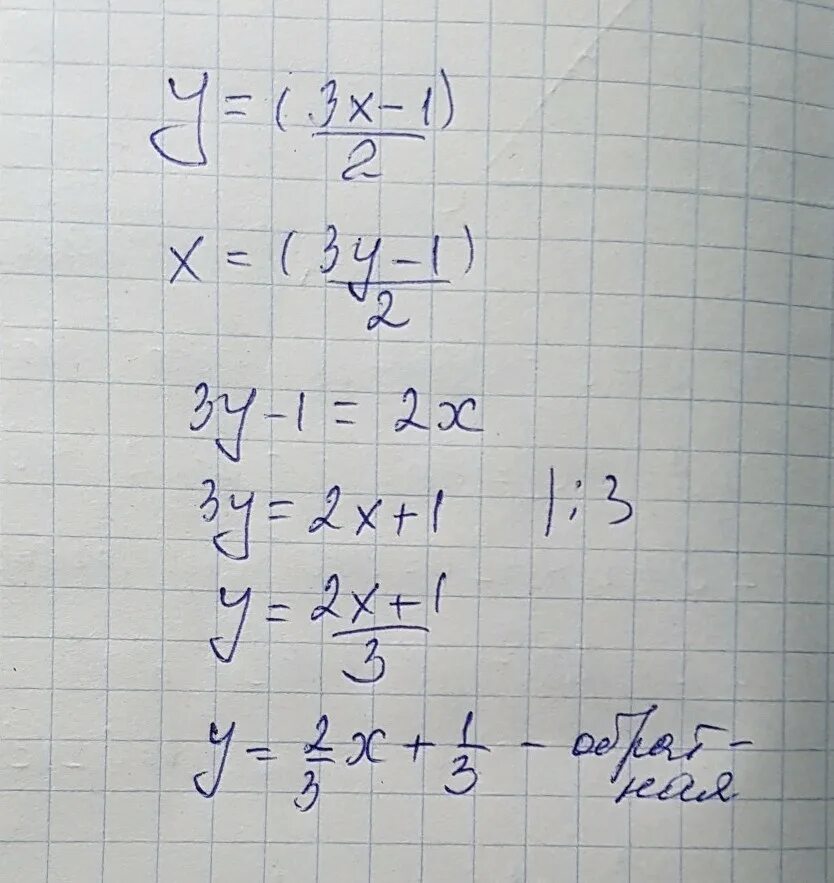 y = (3x-1)/2
x = (3y-1)/2
3y-1 = 2x
3y = 2x+1 |:3
y = (2x+1)/3
y = 2/3 x + 1/3 - обрат-
ная